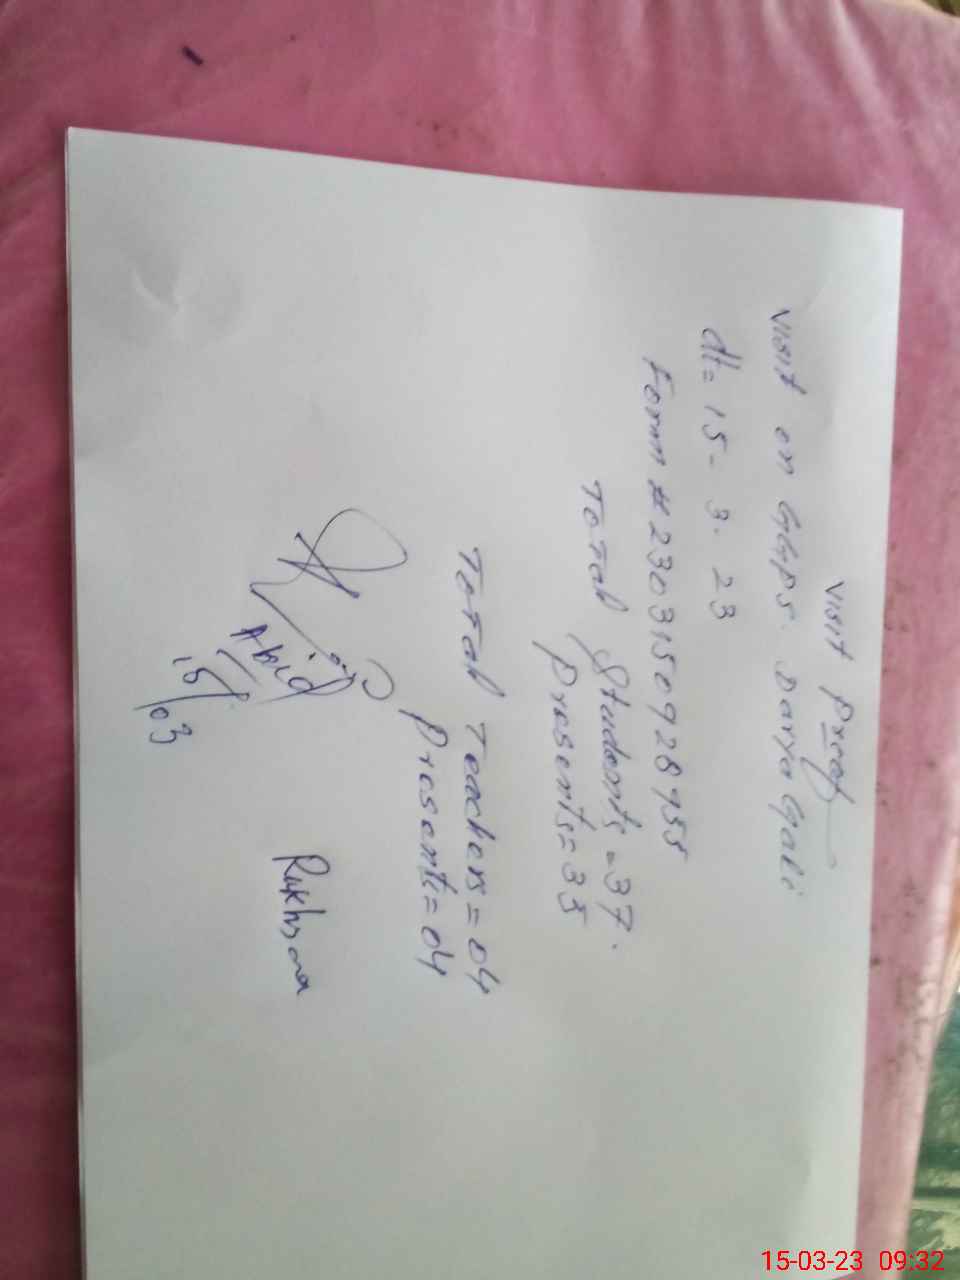 Visit Proof
Visit on GGPS. Darya Gali
dt= 15- 3. 23
Form # 2303150928955
Total Students = 37.
Presents = 35
Total Teachers = 04
Presents = 04
Abid
15/03
Rukhsana
15-03-23 09:32